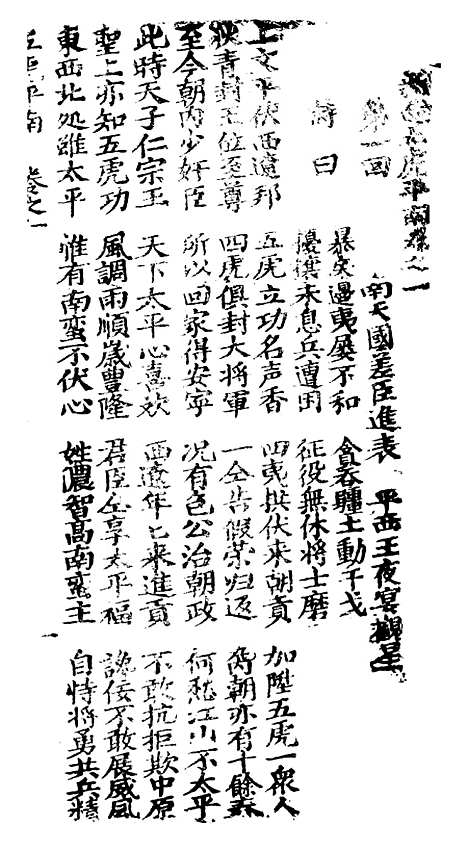 平南 卷之一
第一回 南天國差臣進表 平西王夜宴觀星
詩曰 暴矣邊夷屡不和 貪吞疆土動干戈
擾攘未息兵遭困 征役無休将士磨
上文平伏西遼邦 五虎立功名声香 四夷拱伏来朝貢 加陞五虎一衆人
狄青封王位至尊 四虎俱封大将軍 一仝告假荣归返 為朝亦有十餘春
至今朝内少奸臣 所以回家得安寧 况有包公治朝政 何愁江山不太平
此時天子仁宗王 天下太平心喜欢 西遼年匕来進貢 不敢抗拒欺中原
聖上亦知五虎功 風調雨順歲豊隆 君臣仝享太平福 讒佞不敢展威風
東西北处雖太平 惟有南蛮不伏心 姓儂智高南蛮主 自恃将勇共兵精
五虎平南 卷之一